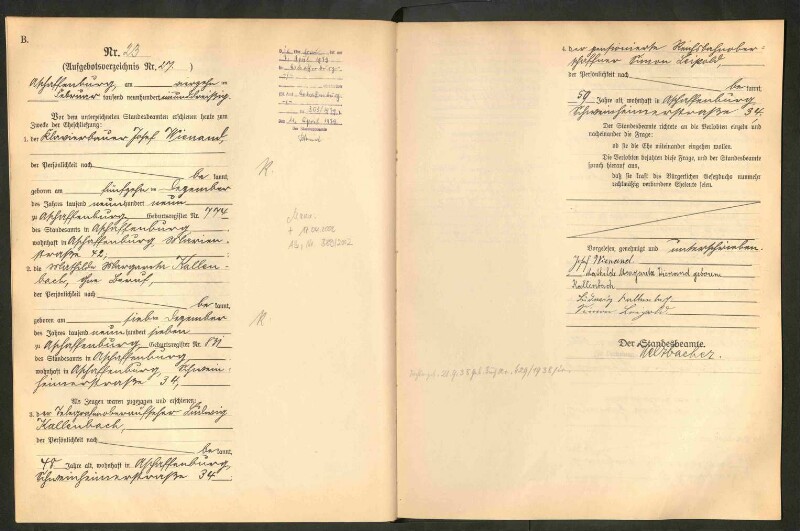 B.
Nr. 23
(Aufgebotsverzeichnis Nr. 27.)
Aschaffenburg, am vierzehn=
Februar tausend neunhundert neununddreißig.
Vor dem unterzeichneten Standesbeamten erschienen heute zum
Zwecke der Eheschließung:
1. der Klavierbauer Josef Wienand,
der Persönlichkeit nach
be kannt,
geboren am fünfzehn= Dezember
des Jahres tausend neunhundert neun
zu Aschaffenburg, Geburtsregister Nr. 774
des Standesamts in Aschaffenburg,
wohnhaft in Aschaffenburg Marien-
straße 42;
2. die Mathilde Margareta Kallen-
bach, ohne Beruf,
der Persönlichkeit nach
be kannt,
geboren am sieb= Dezember
des Jahres tausend neunhundert sieben
zu Aschaffenburg, Geburtsregister Nr.
des Standesamts in Aschaffenburg,
wohnhaft in Aschaffenburg, Schwein-
heimerstraße 34,
Als Zeugen waren zugezogen und erschienen:
3. der Telegrafenoberaufseher Ludwig
Kallenbach,
der Persönlichkeit nach
be kannt,
Jahre alt, wohnhaft in Aschaffenburg,
Schweinheimerstraße 34
April 1939
K.
K
4. der pensionierte Reichsbahnober-
schaffner Simon Leipold,
der Persönlichkeit nach
be kannt,
59 Jahre alt, wohnhaft in Aschaffenburg
Schweinheimerstraße 34.
Der Standesbeamte richtete an die Verlobten einzeln und
nacheinander die Frage,
ob sie die Ehe miteinander eingehen wollen.
Die Verlobten bejahten diese Frage, und der Standesbeamte
sprach hierauf aus,
daß sie kraft des Bürgerlichen Gesetzbuchs nunmehr
rechtmäßig verbundene Eheleute seien.
Vorgelesen, genehmigt und unterschrieben.
Josef Wienand
Mathilde Margareta Wienand geborene
Kallenbach
Ludwig Kallenbach
Simon Leipold
Der Standesbeamte.